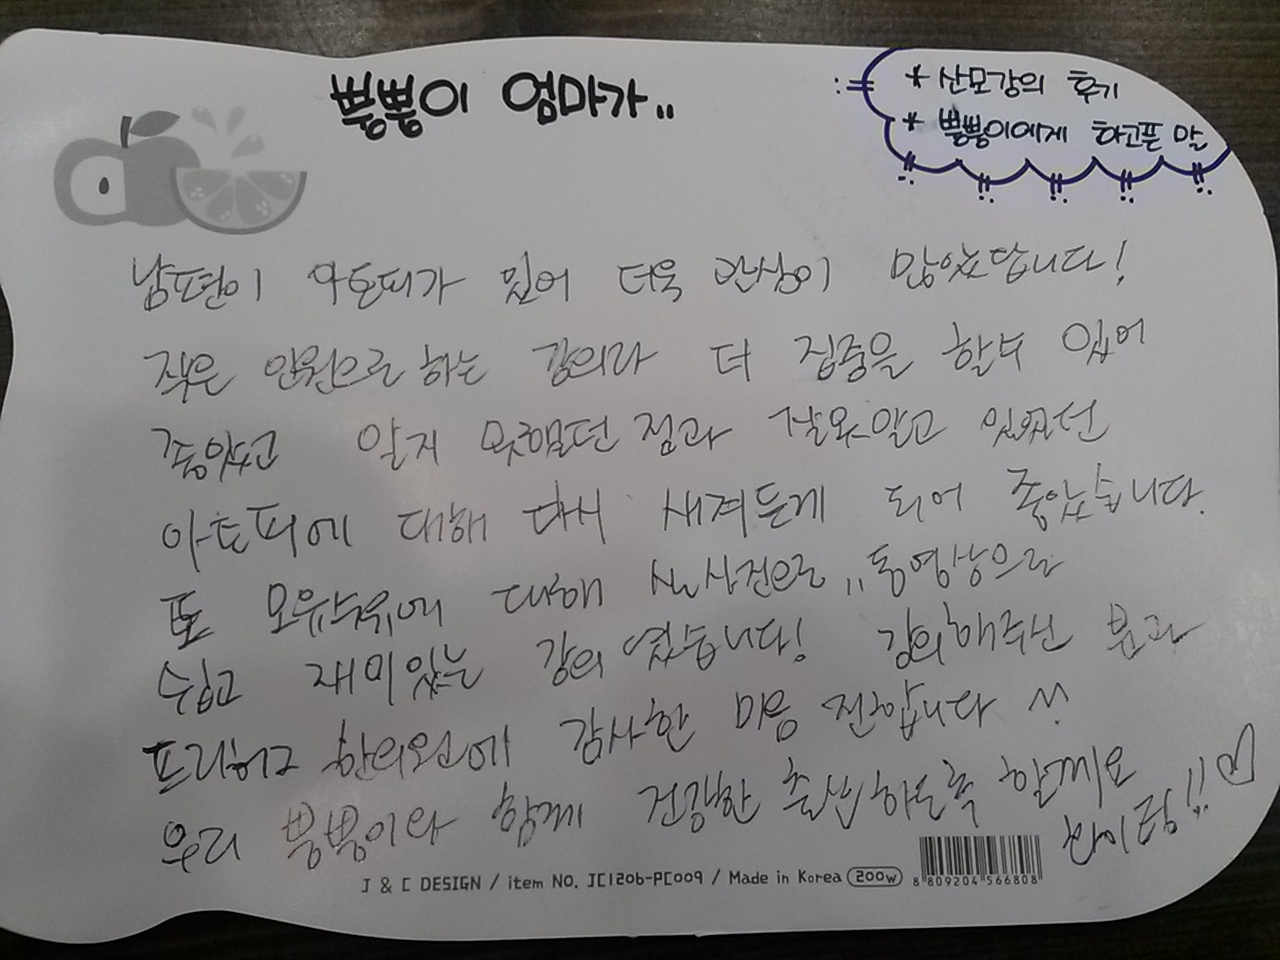 뿡뿡이 엄마가..
* 산모강의 후기
* 뿡뿡이에게 하고픈 말
남편이 아토피가 있어 더욱 관심이 많았답니다!
적은 인원으로 하는 강의라 더 집중을 할수 있어
좋았고 알지 못했던 점과 잘못알고 있었던
아토피에 대해 다시 새겨듣게 되어 좋았습니다.
또 모유수유에 대해 실사진으로,, 동영상으로
쉽고 재미있는 강의 였습니다! 강의해주신 분과
프리허그 한의원에 감사한 마음 전합니다 ^^
우리 뿡뿡이와 함께 건강한 출산하도록 할께요
J & C DESIGN / item NO. JC1206-PC009 / Made in Korea 200w
8 809204 566808